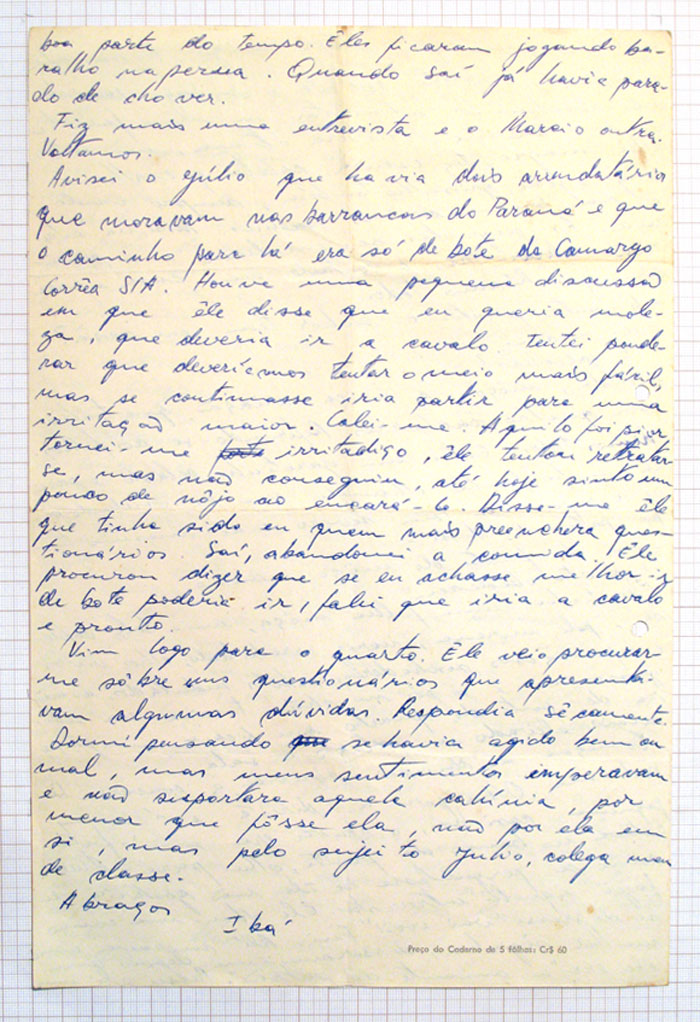 boa parte do tempo. Êles ficaram jogando ba-
ralho na pensa. Quando saí já havia para-
do de chover.
Fiz mais uma entrevista e o Marcio outra.
Voltamos.
Avisei o Júlio que havia dois arrendatário
que moravam nas barrancas do Paraná e que
o caminho para lá era só de bote da Camargo
Corrêa S/A. Houve uma pequena discussão
em que êle disse que eu queria mole-
za, que deveria ir a cavalo. Tentei ponde-
rar que deveríamos tentar o meio mais fácil,
mas se continuasse iria partir para uma
irritação maior. Calei-me. Aquilo foi pior,
tornei-me irritadiço, êle tentou retratar-
se, mas não conseguiu, até hoje sinto um
pouco de nôjo ao encará-lo. Disse-me êle
que tinha sido eu quem mais preenchera ques-
tionários. Saí, abandonei a comida. Êle
procurou dizer que se eu achasse melhor ir
de bote poderia ir, falei que iria a cavalo
e pronto.
Vim logo para o quarto. Êle veio procurar-
me sôbre uns questionários que apresenta-
vam algumas dúvidas. Respondia sêcamente.
Dormi pensando se havia agido bem ou
mal, mas meus sentimentos imperavam
e não suportara aquela calúnia, por
menor que fôsse ela, não por ela em
si, mas pelo sujeito Julio, colega meu
de classe.
Abraços
Ibá
Preço do Caderno de 5 fôlhas: Cr$ 60